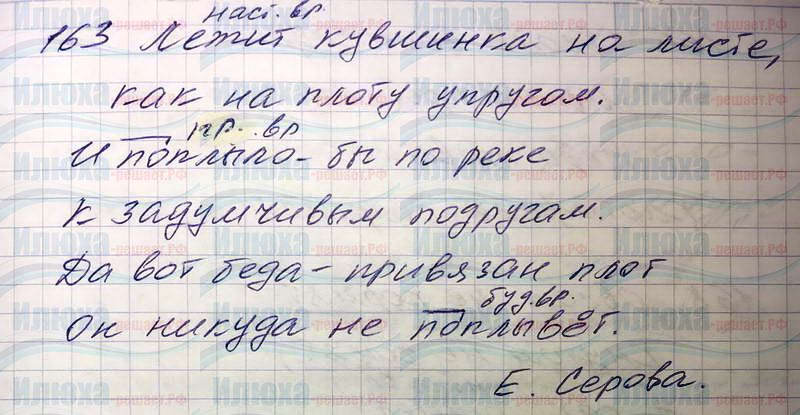 наст. вр.
163 Лежит кувшинка на листе,
как на плоту упругом.
пр. вр
И поплыло-бы по реке
к задумчивым подругам.
Да вот беда- привязан плот
буд. вр.
Он никуда не поплывёт.
Е. Серова.